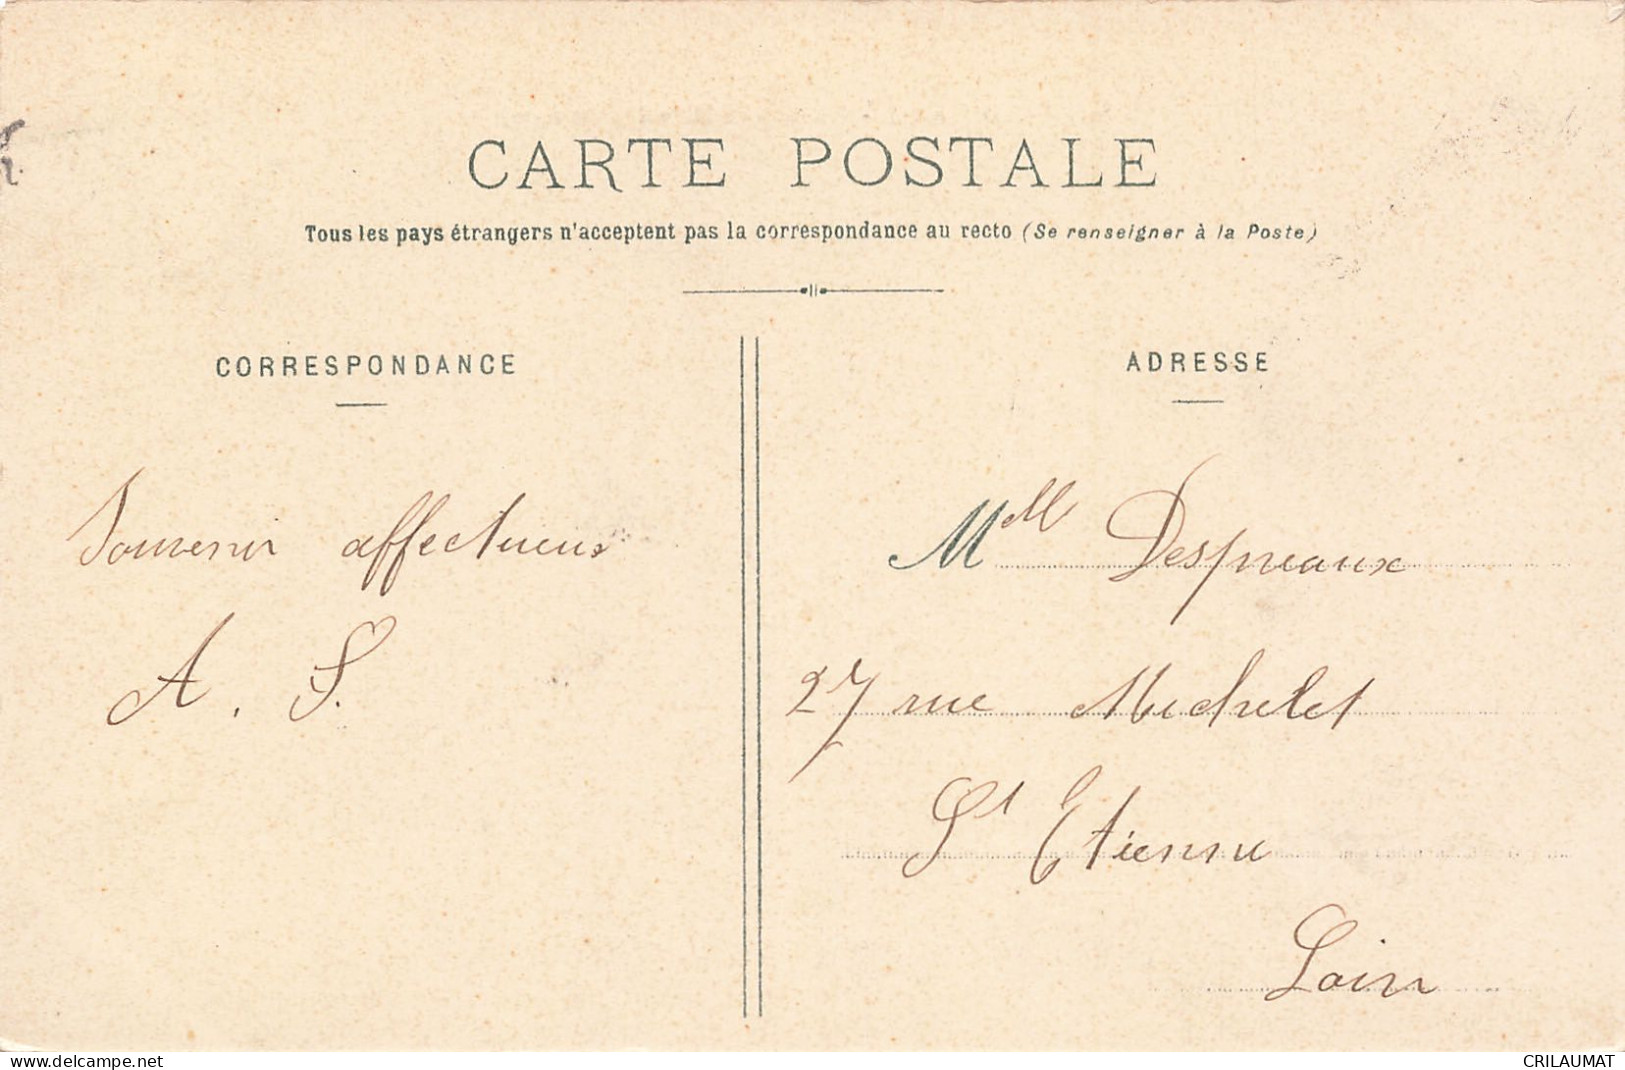 CARTE POSTALE
Tous les pays étrangers n'acceptent pas la correspondance au recto (Se renseigner à la Poste)
CORRESPONDANCE
Souvenir affectueux
A. S.
ADRESSE
Mell Despreaux
27 rue Michelet
St Etienne
Loire
www.delcampe.net
CRILAUMAT